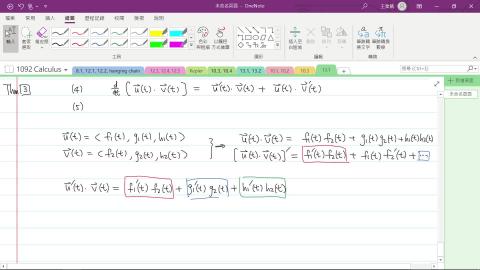 未命名頁面 - OneNote
檔案 常用 插入 繪圖 歷程記錄 校閱 檢視 說明
工具
1092 Calculus 8.1, 12.1, 12.2, hanging chain 12.3, 12.4, 12.5 Kepler 18.3, 18.4 13.1, 13.2 18.1, 18.2 18.3 13.1
未命名頁面
Thm 3 (4) d/dt [ u⃗(t) · v⃗(t) ] = u⃗'(t) · v⃗(t) + u⃗(t) · v⃗'(t)
(5)
u⃗(t) = < f₁(t), g₁(t), h₁(t) >
v⃗(t) = < f₂(t), g₂(t), h₂(t) >
u⃗(t) · v⃗(t) = f₁(t) f₂(t) + g₁(t) g₂(t) + h₁(t) h₂(t)
[ u⃗(t) · v⃗(t) ]' = f₁'(t) f₂(t) + f₁(t) f₂'(t) + ...
u⃗'(t) · v⃗(t) = f₁'(t) f₂(t) + g₁'(t) g₂(t) + h₁'(t) h₂(t)